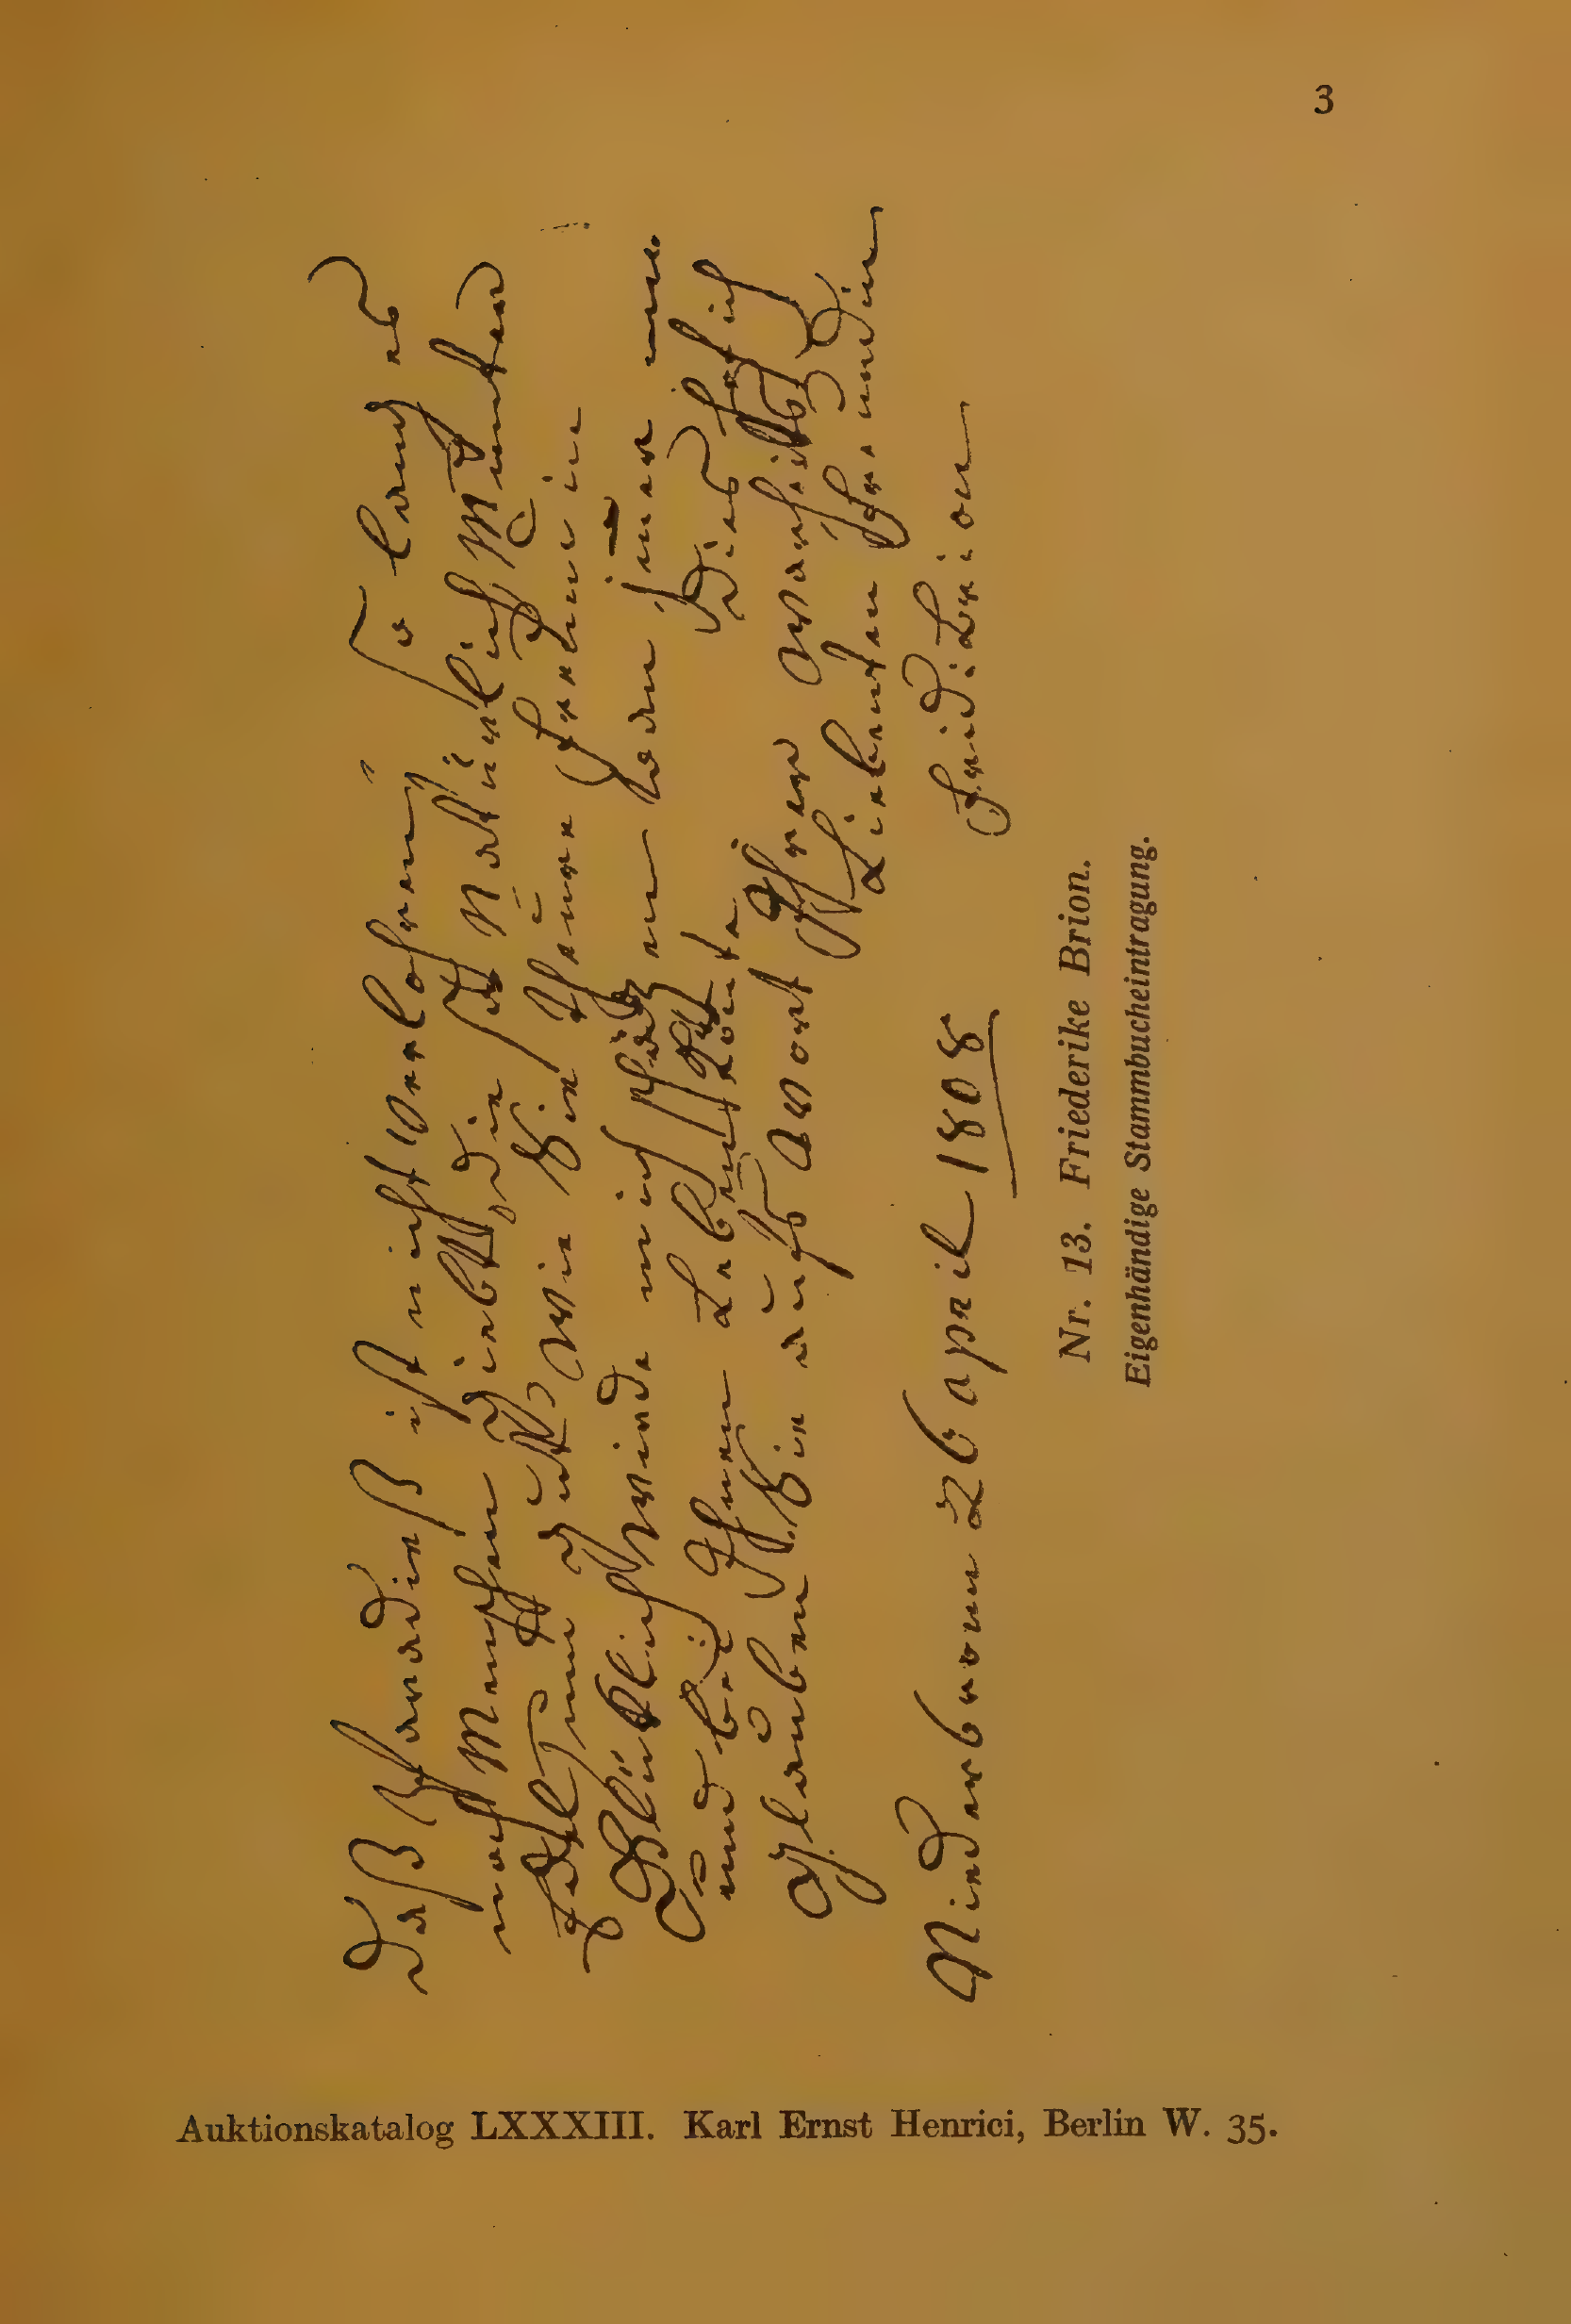 3
daß Paradieß ist nicht verlohren, so lang es
noch Menschen giebt, die so Natürlich Munter
Edel wie Sie theure Freundin
Glüklich würde mich schäzen
und bei Ihnen Leben könte dies
Glauben Sie aufs Wort Ihrer
Liebenden Freundin
Niederbronn 26 april 1808 Frid: Brion
Nr. 13. Friederike Brion.
Eigenhändige Stammbucheintragung.
Auktionskatalog LXXXIII. Karl Ernst Henrici, Berlin W. 35.